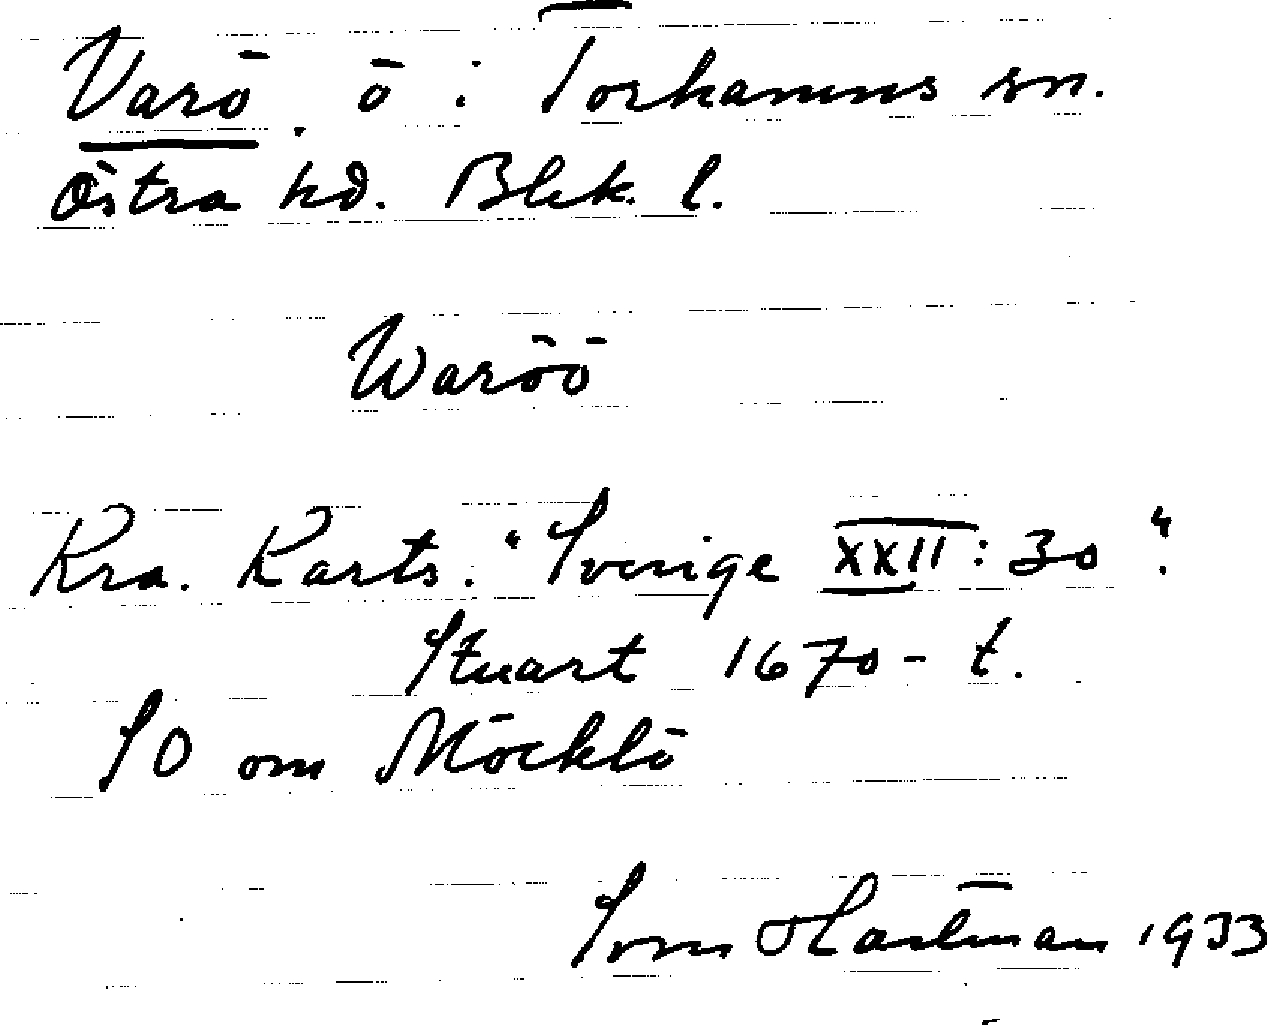 Varö, ö i Torhamns sn.
Östra hd. Blek. l.
Waröö
Kra. Karts. "Sverige XXII:30".
Stuart 1670-t.
SO om Möcklö
Sven Hartman 1933